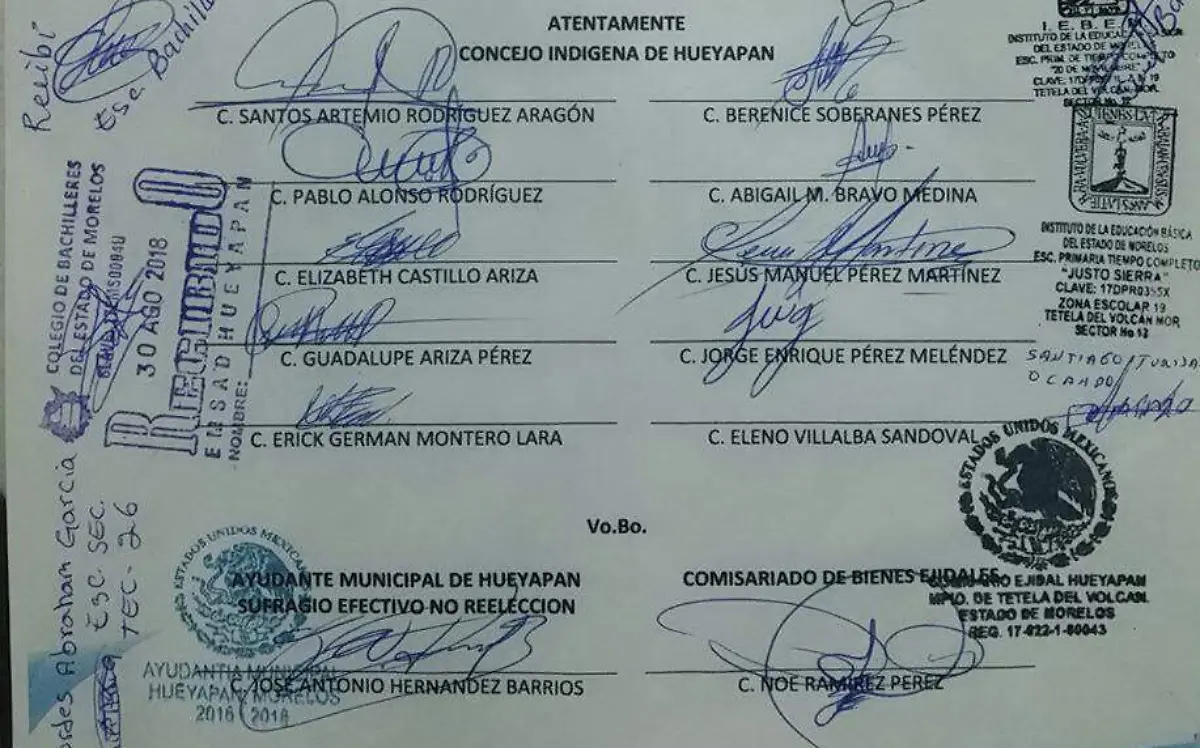 ATENTAMENTE
CONCEJO INDIGENA DE HUEYAPAN
C. SANTOS ARTEMIO RODRÍGUEZ ARAGÓN
C. BERENICE SOBERANES PÉREZ
C. PABLO ALONSO RODRÍGUEZ
C. ABIGAIL M. BRAVO MEDINA
C. ELIZABETH CASTILLO ARIZA
C. JESÚS MANUEL PÉREZ MARTÍNEZ
C. GUADALUPE ARIZA PÉREZ
C. JORGE ENRIQUE PÉREZ MELÉNDEZ
C. ERICK GERMAN MONTERO LARA
C. ELENO VILLALBA SANDOVAL
Vo.Bo.
AYUDANTE MUNICIPAL DE HUEYAPAN
SUFRAGIO EFECTIVO NO REELECCION
C. JOSE ANTONIO HERNANDEZ BARRIOS
COMISARIADO DE BIENES EJIDALES
C. NOE RAMIREZ PEREZ
Recibí
Esc. Bachilla
COLEGIO DE BACHILLERES
DEL ESTADO DE MORELOS
30 AGO 2018
RECIBIDO
EMSAD HUEYAPAN
NOMBRE:
Abraham Garcia
ESC. SEC.
TEC- 26
ESTADOS UNIDOS MEXICANOS
AYUDANTIA MUNICIPAL
HUEYAPAN, MORELOS
2016 2018
I. E. B. E. M.
INSTITUTO DE LA EDUCAC
DEL ESTADO DE MOREL
ESC. PRIM. DE TIEMPO COMPLETO
"20 DE NOVIEMBRE"
TETELA DEL VOLCAN MOR.
SECTOR No. 12
INSTITUTO DE LA EDUCACIÓN BÁSICA
DEL ESTADO DE MORELOS
ESC. PRIMARIA TIEMPO COMPLETO
"JUSTO SIERRA"
CLAVE: 17DPR0355X
ZONA ESCOLAR 19
TETELA DEL VOLCÁN MOR
SECTOR No 12
SANTIAGO
OCAMPO
ESTADOS UNIDOS MEXICANOS
EJIDAL HUEYAPAN
MPIO. DE TETELA DEL VOLCAN.
ESTADO DE MORELOS
REG. 17-022-1-00043